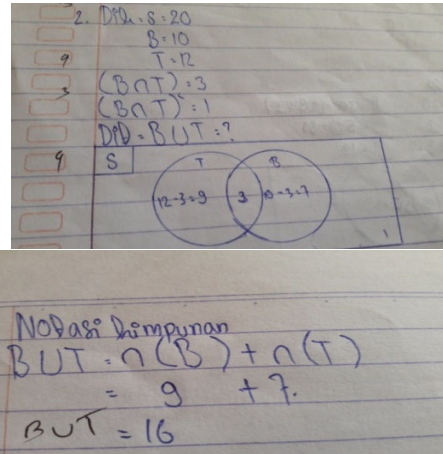 2. Dik = S = 20
B = 10
T = 12
(B∩T) = 3
(B∩T)ᶜ = 1
DiD = B U T = ?
S
T B
12-3=9 3 10-3=7
1
NoDasi himpunan
B U T = n(B) + n(T)
= 9 + 7.
B U T = 16